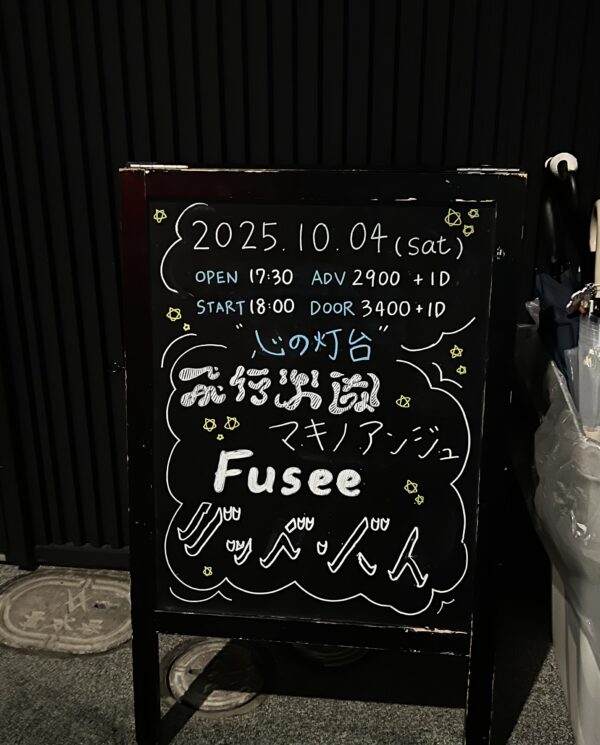 2025.10.04(Sat)
OPEN 17:30 ADV 2900 +1D
START 18:00 DOOR 3400+1D
"心の灯台"
マキノアンジュ
Fusee